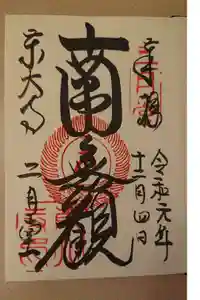 奉拝
令和元年
十二月四日
南無観
東大寺
二月堂